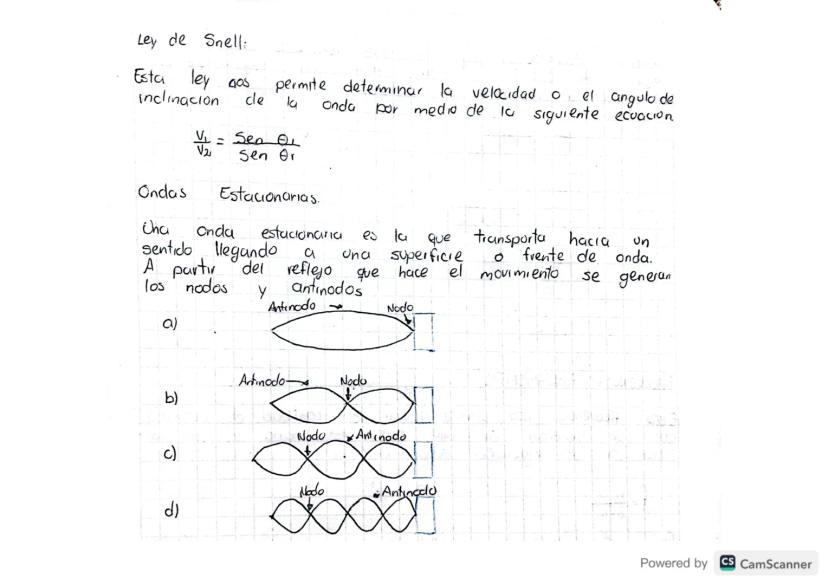 Ley de Snell:
Esta ley nos permite determinar la velocidad o el angulo de
inclinacion de la onda por medio de la siguiente ecuacion
V₁/V₂ = Sen θi / Sen θr
Ondas Estacionarias.
Una onda estacionaria es la que transporta hacia un
sentido llegando a una superficie o frente de onda.
A partir del reflejo que hace el movimiento se generan
los nodos y antinodos
Antinodo Nodo
a)
Antinodo Nodo
b)
Nodo Antinodo
c)
Nodo Antinodo
d)
Powered by CS CamScanner